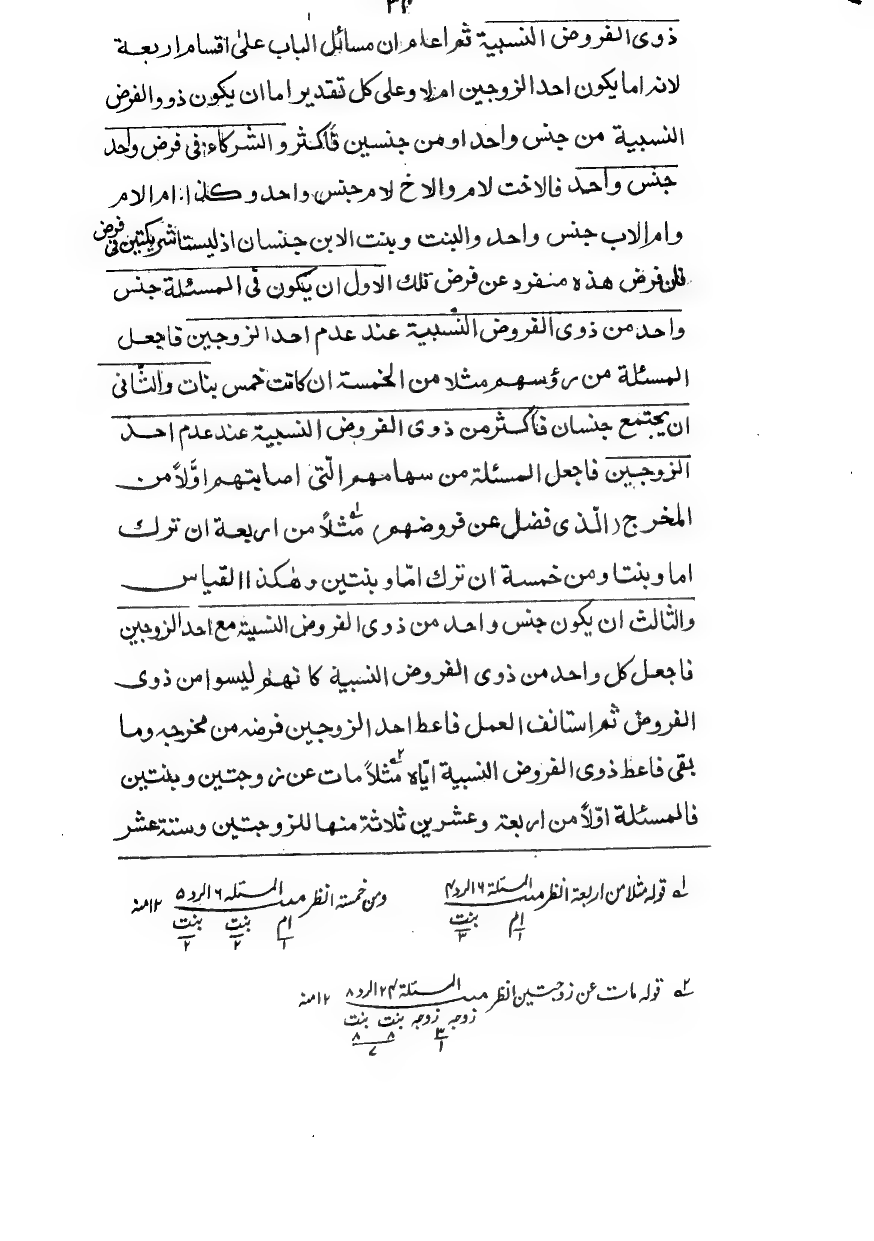 ٣٢
ذوى الفروض النسبية ثم اعلم ان مسائل الباب على اقسام اربعة
لانه اما يكون احد الزوجين ام لا وعلى كل تقدير اما ان يكون ذوو الفرض
النسبية من جنس واحد او من جنسين فاكثر والشركاء فى فرض واحد
جنس واحد فالاخت لام والاخ لام جنس واحد وكذا ام الام
وام الاب جنس واحد والبنت وبنت الابن جنسان اذ ليستا شريكتين فى فرض
فان فرض هذه منفرد عن فرض تلك الاول ان يكون فى المسئلة جنس
واحد من ذوى الفروض النسبية عند عدم احد الزوجين فاجعل
المسئلة من رؤسهم مثلا من الخمسة ان كانت خمس بنات والثانى
ان يجتمع جنسان فاكثر من ذوى الفروض النسبية عند عدم احد
الزوجين فاجعل المسئلة من سهامهم الّتى اصابتهم اوّلاً من
المخرج (الّذى فضل عن فروضهم) مثلاً من اربعة ان ترك
اما وبنتا ومن خمسة ان ترك امّا وبنتين وهٰكذا القياس
والثالث ان يكون جنس واحد من ذوى الفروض النسبية مع احد الزوجين
فاجعل كل واحد من ذوى الفروض النسبية كانهم ليسوا من ذوى
الفروض ثم استانف العمل فاعط احد الزوجين فرضه من مخرجه وما
بقى فاعط ذوى الفروض النسبية ايّاه مثلاً مات عن زوجتين وبنتين
فالمسئلة اوّلاً من اربعة وعشرين ثلاثة منها للزوجتين وستة عشر
١ قوله مثلا من اربعة انظر مـيـت المسئلة ٦ الرد ٤ ومن خمسة انظر مـيـت المسئلة ٦ الرد ٥ ١٢ منه
ام بنت ام بنت بنت
١ ٣ ١ ٢ ٢
٢ قوله مات عن زوجتين انظر مـيـت المسئلة ٢٤ الرد ٨ ١٢ منه
زوجه زوجه بنت بنت
٣ ٨ ٨
١ ٧